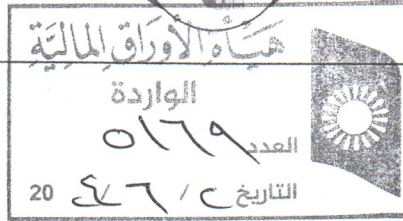 هيأة الأوراق المالية
الواردة
العدد ٥١٦٩
التاريخ ٢ / ٦ / ٢٤ 20